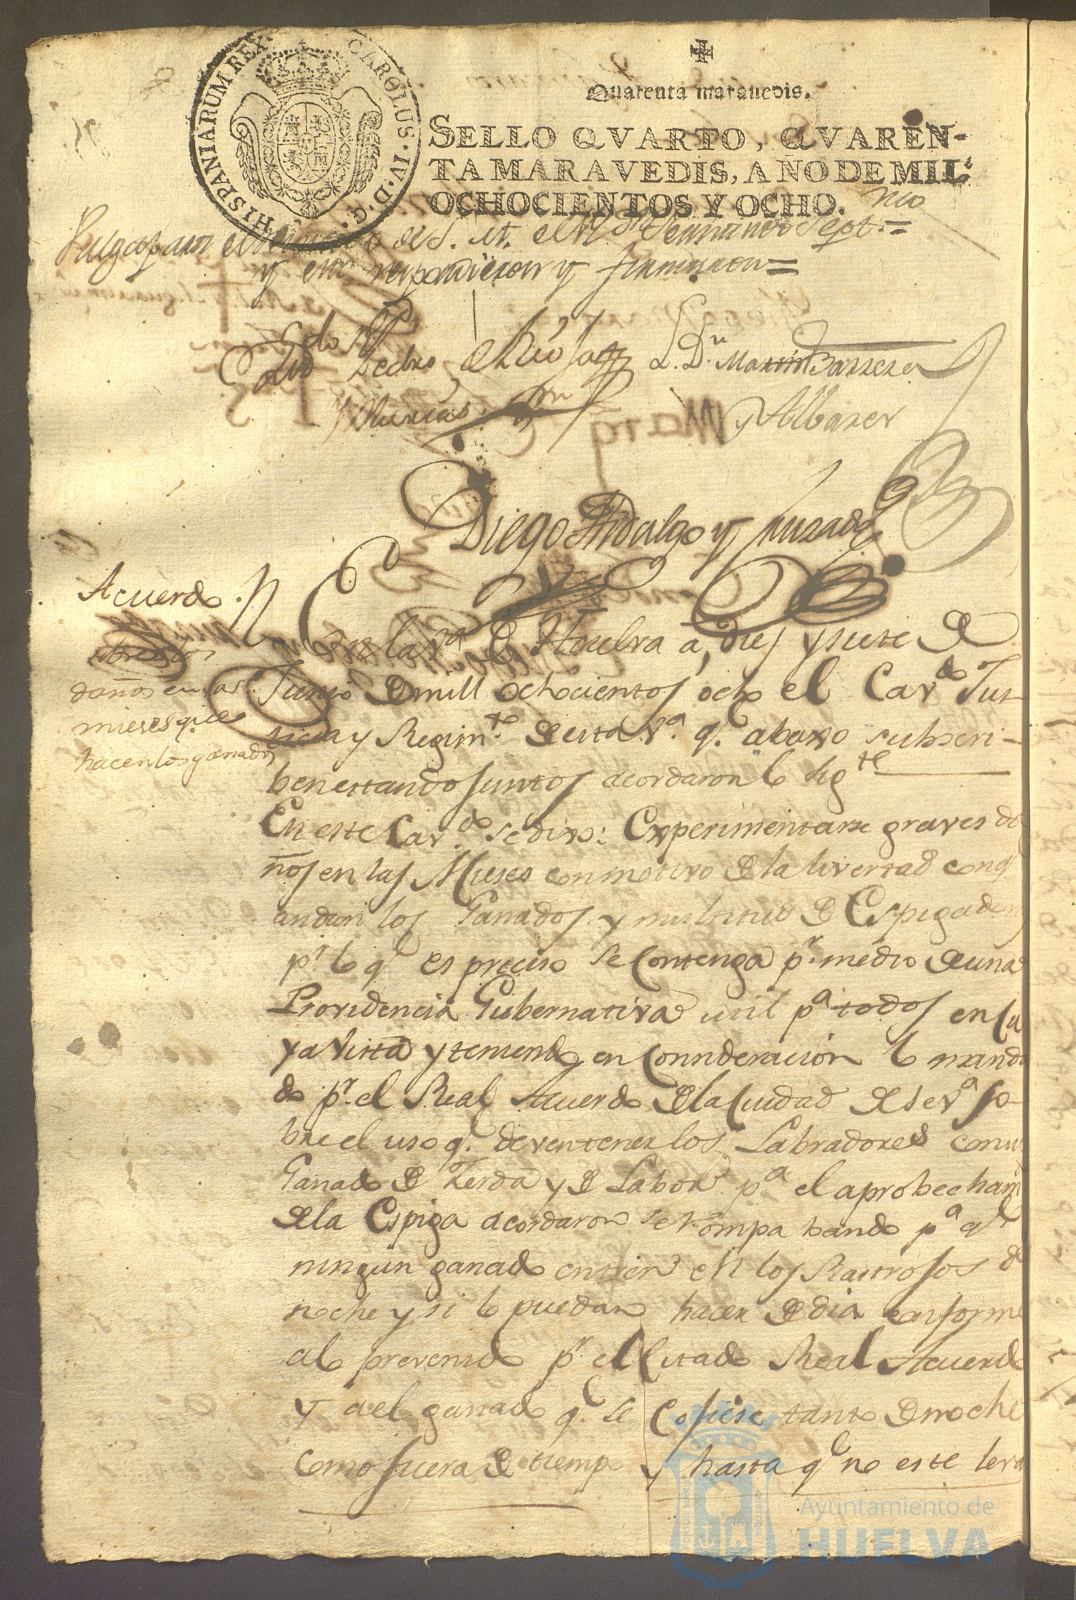 HISPANIARUM REX. CAROLUS. IV. D. G.
Quarenta maravedis.
SELLO QVARTO, QVAREN-
TA MARAVEDIS, AÑO DE MIL
OCHOCIENTOS Y OCHO.
Valga para el de S. M. el Sr. Dn. Fernando Septmo =
y firmaron =
Pedro de Rioja L. Dn. Martin Barrera
y Albarer
Diego Hidalgo y
Acuerdo
sobre los
daños en las
mieses q.e
hacen los ganados
En la V.a de Huelva a diez y siete de
Junio de mill ochocientos ocho el Cav.do Jus-
ticia y Regim.to de esta V.a q.e abaxo subscri-
ben estando juntos acordaron lo sig.te
En este Cav.do se dixo: Experimentarse graves da
ños en las Mieses con motivo de la livertad conq
andan los Ganados, y multitud de Espigaderos
p.r lo q.e es preciso se contenga p.r medio de una
Providencia Gubernativa util p.a todos en cu
ya vista y teniendo en consideracion lo manda
do p.r el Real Acuerdo de la Ciudad de Sev.a so-
bre el uso q.e deven tener los Labradores con su
Ganado de Zerda y de Labor p.a el aprobecham
de la Espiga acordaron se rompa bando p.a q.e
ningun ganado entre en los Rastrojos de
noche y si lo puedan hacer de dia conforme
al prevenido p.r el citado Real Acuerdo
Y del ganado q.e se cojiese tanto de noche
como fuera de tiempo y hasta q.e no este leva
Ayuntamiento de
HUELVA